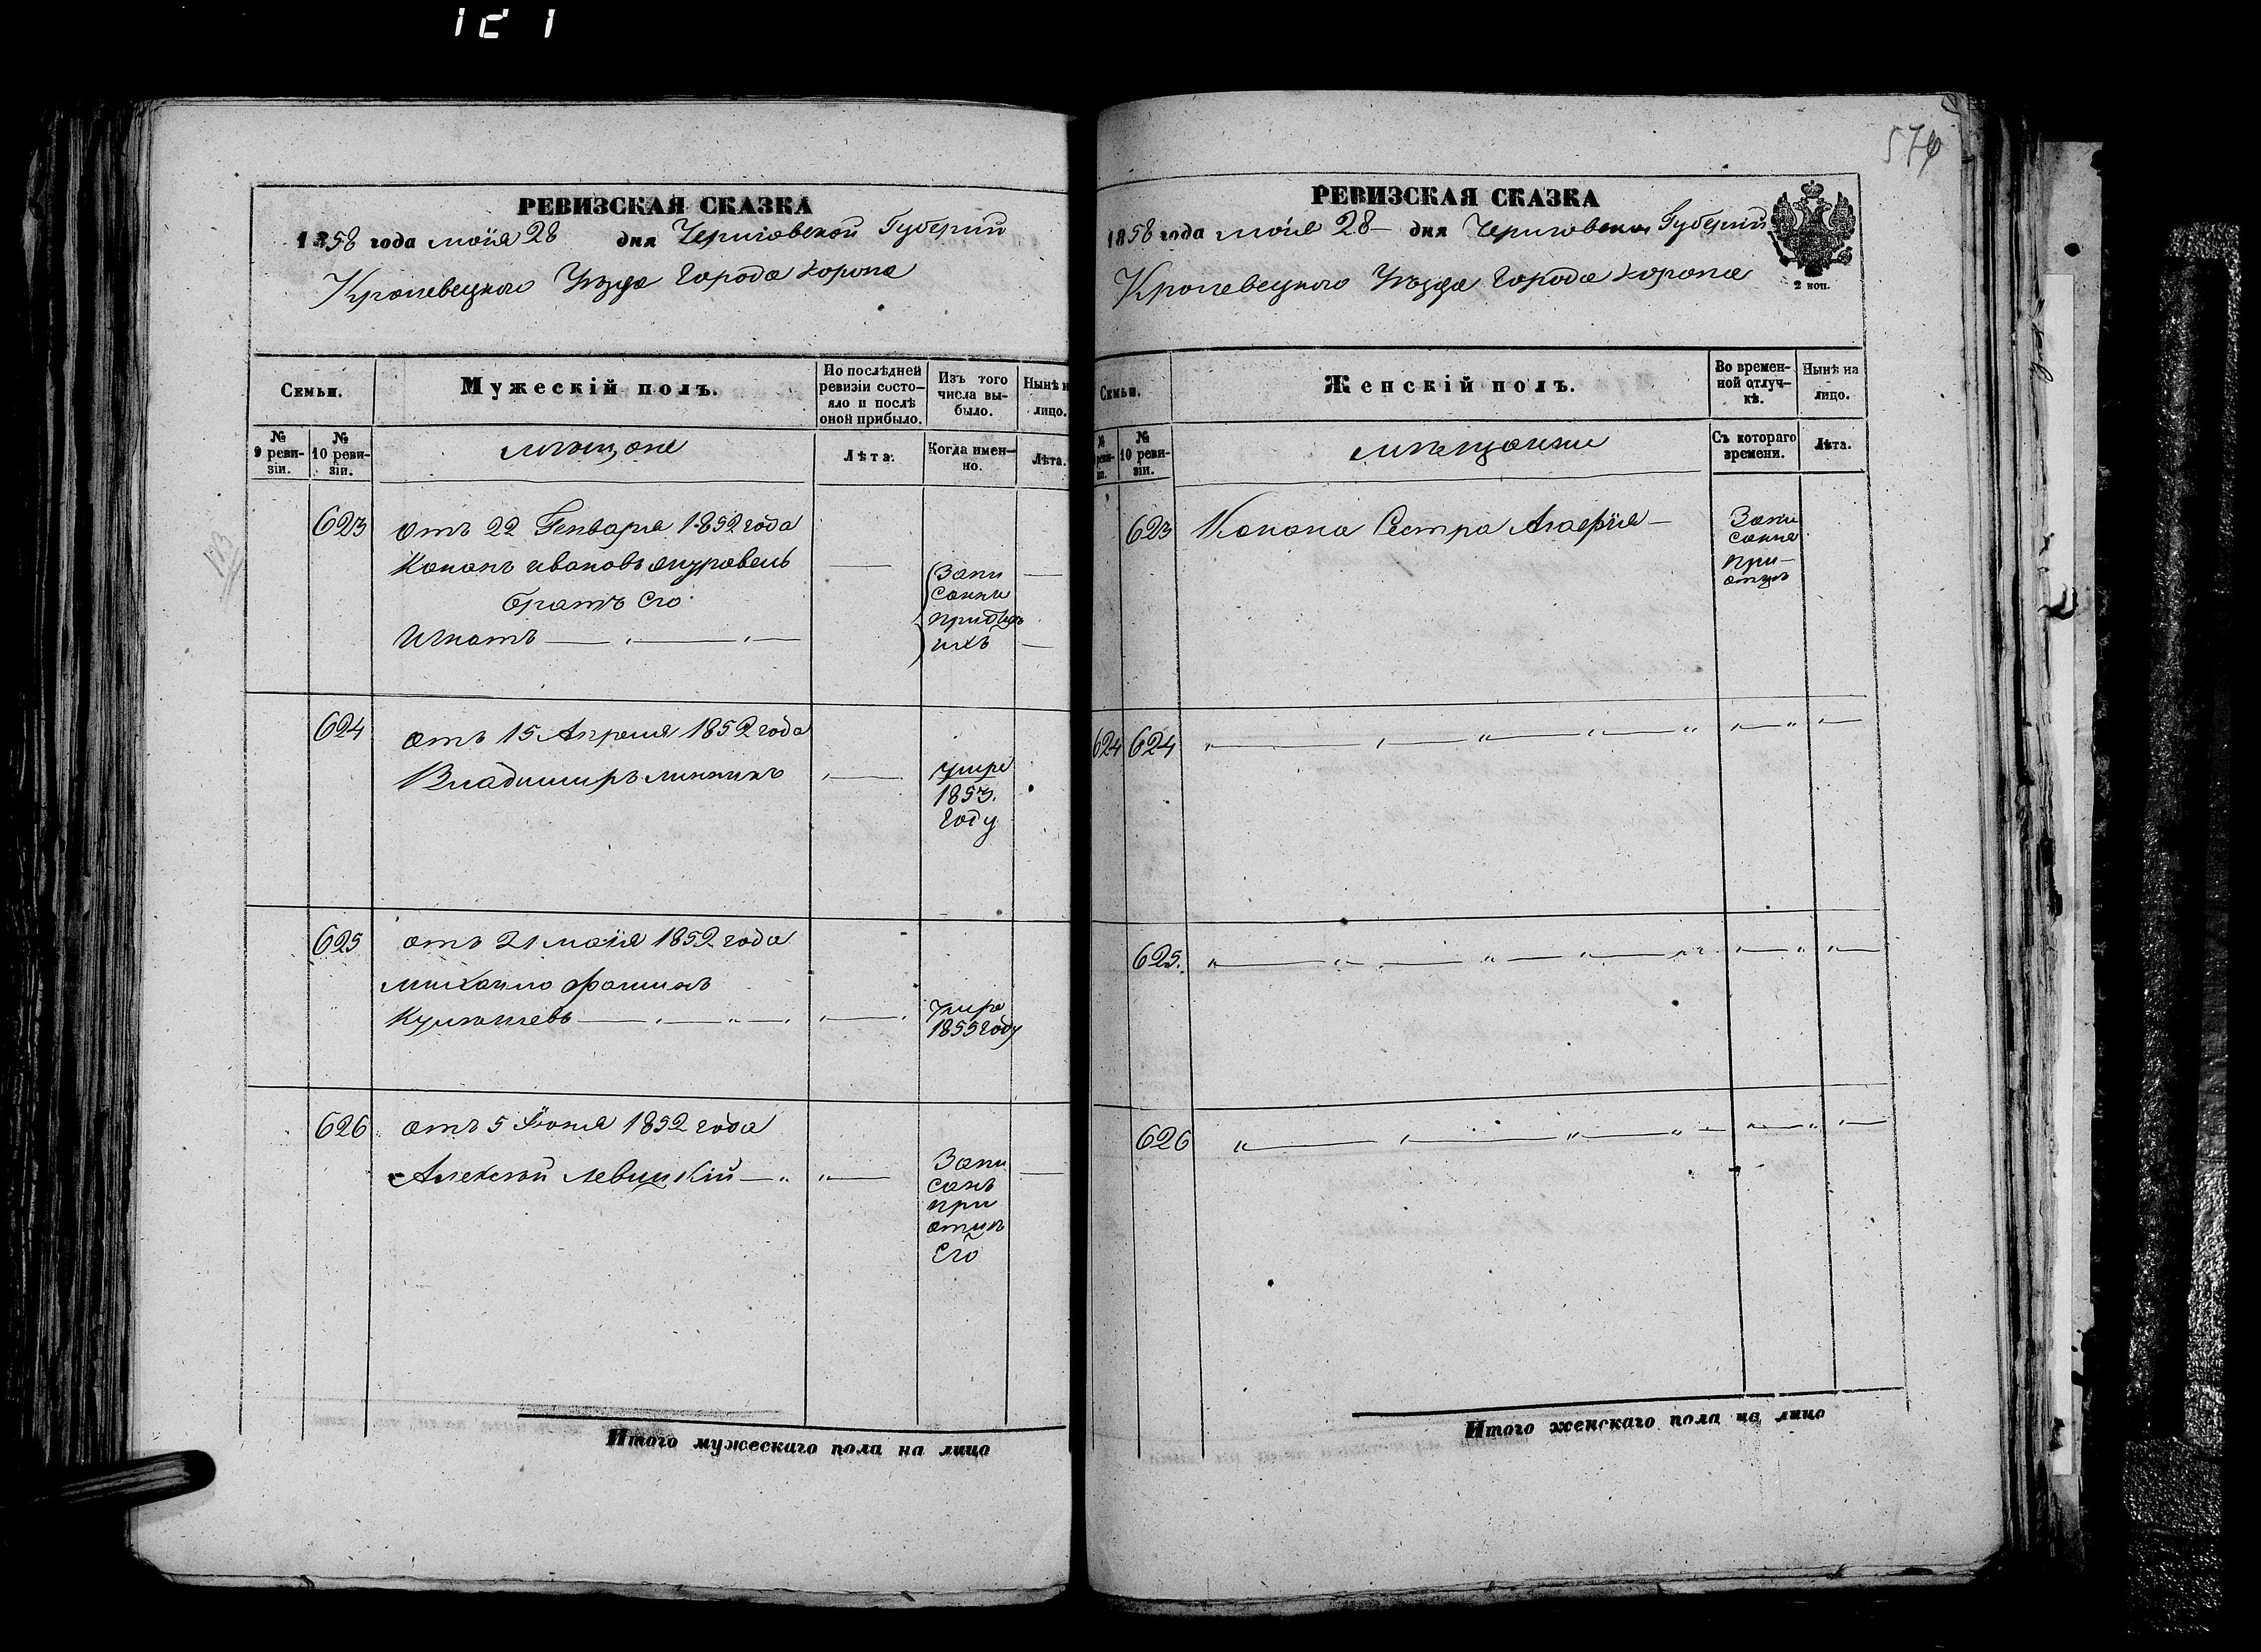 РЕВИЗСКАЯ СКАЗКА
1858 года маія 28 дня Черниговской Губерніи
Кролевецкого Уезда Города Коропа
Семьи.
Мужескій полъ.
По послѣдней ревизіи состо-
яло и послѣ
оной прибыло.
Изъ того
числа вы-
было.
Нынѣ н
лицо.
№
9 реви-
зіи.
№
10 реви-
зіи.
мещане
Лѣта.
Когда имен-
но.
Лѣта.
623
отъ 22 Генваря 1852 года
Кононъ Ивановъ
братъ его
Игнатъ
Запи
санни
при
ихъ
624
отъ 15 Апреля 1852 года
Владимиръ
умре
1853.
году
625
отъ 21 маія 1852 года
михайло
умре
1855 году
626
отъ 5 Іюня 1852 года
Алексей Левицкій
Запи
санъ
при
отцѣ
его
Итого мужескаго пола на лицо
576
РЕВИЗСКАЯ СКАЗКА
1858 года маія 28 дня Черниговской Губерніи
Кролевецкого Уезда Города Коропа
2 коп.
Семьи.
Женскій полъ.
Во времен-
ной отлуч-
кѣ.
Нынѣ на
лицо.
№
реви-
зіи.
№
10 реви-
зіи.
мещанки
Съ котораго
времени.
Лѣта.
623
Конона Сестра Агафія
Запи
санна
при
отцѣ
624 624
625.
626
Итого женскаго пола на лицо